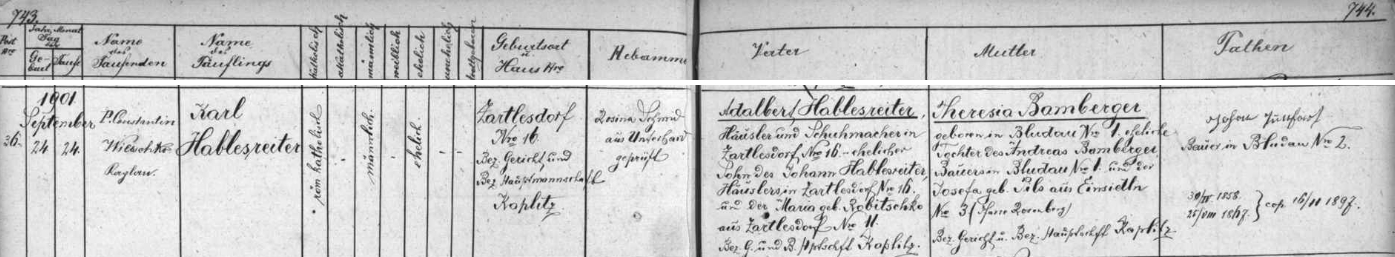 743.
744.
Post Nro
Jahr, Monat
Tag
der
Geburt Taufe
Name
des
Taufenden
Name
des
Täuflings
katholisch
akatholisch
männlich
weiblich
ehelich
unehelich
Geburtsort
u
Haus Nro
Hebamme
Vater
Mutter
Pathen
36.
1901
September
24. 24.
P. Constantin
Kaplan.
Karl
Hablesreiter
röm katholisch
männlich.
ehelich.
Zartlesdorf
Nro 16.
Bez. Gericht und
Bez. Hauptmannschaft
Kaplitz
Rosina
aus Unterhaid
geprüft
Adalbert Hablesreiter,
Häusler und Schuhmacher in
Zartlesdorf No 16 - ehelicher
Sohn des Johann Hablesreiter,
Häuslers in Zartlesdorf No 16.
und der Maria geb. Robitschko
aus Zartlesdorf No 11.
Bez. G. und B. Hptschft Kaplitz.
Theresia Bamberger
geboren in Bludau No 1, eheliche
Tochter des Andreas Bamberger
Bauers in Bludau No 1. und der
Josefa geb. Pils aus Einsiedln
No 3 (Pfarre Rosenberg)
Bez. Gericht u. Bez. Hauptschft Kaplitz.
Johann
Bauer in Bludau No 2.
1858.
25/VIII 1867. } cop. 16/11 1897.